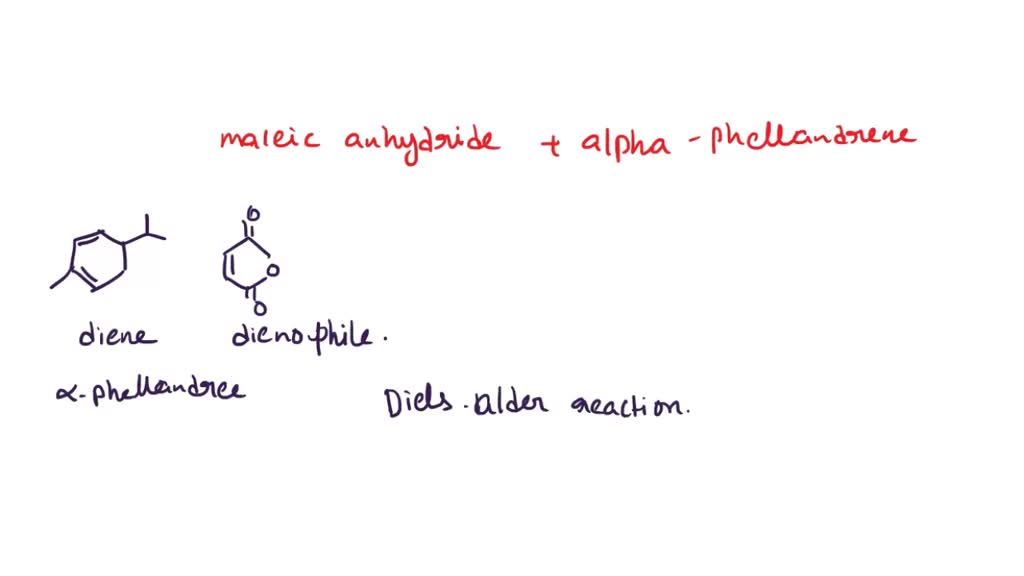 maleic anhydride + alpha - phellandrene
O
O
O
diene dienophile.
α-phellandree
Diels-alder reaction.